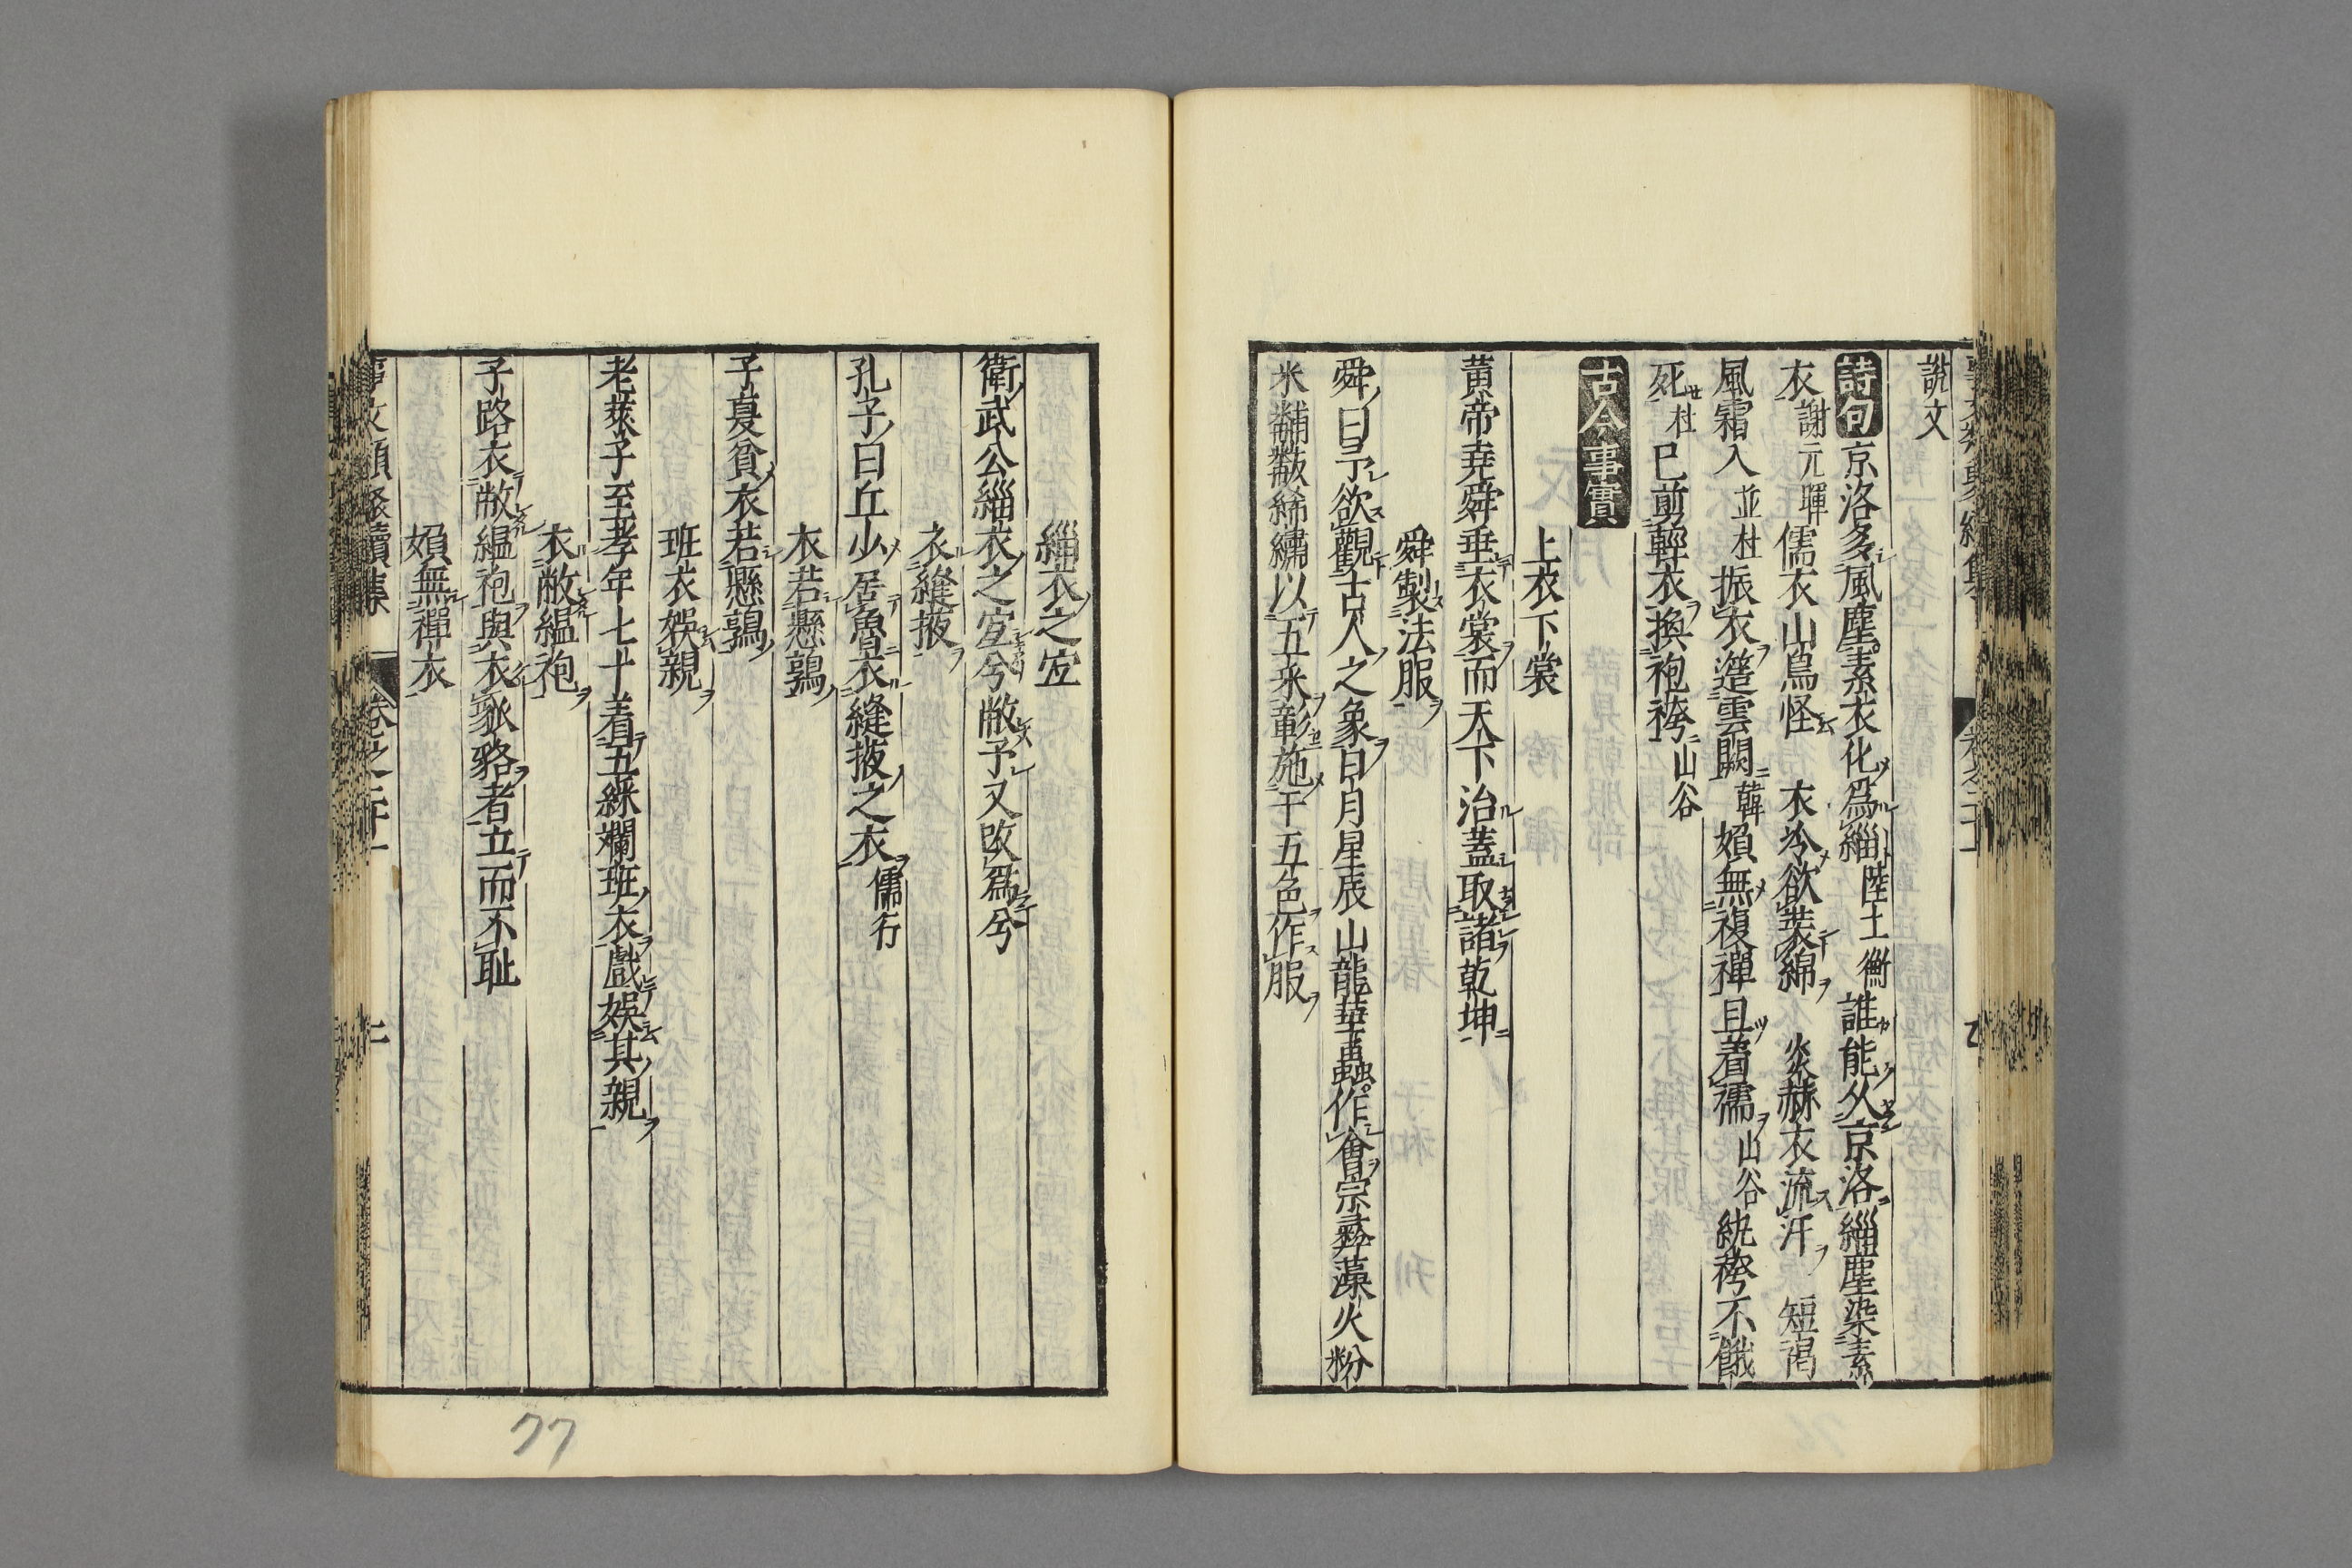 說文
詩句京洛多風塵素衣化爲緇陸士衡誰能久京洛緇塵染素
衣謝元暉儒衣山鳥怪 衣冷欲裝綿 炎赫衣流汗 短褐
風霜入並杜振衣造雲闕韓頻無複襌且着襦山谷紈袴不餓
死杜已剪輕衣換袍袴山谷
古今事實
上衣下裳
黃帝堯舜垂衣裳而天下治蓋取諸乾坤
舜製法服
舜曰予欲觀古人之象日月星辰山龍華蟲作會宗彝藻火粉
米黼黻絺繡以五采彰施于五色作服
緇衣之宜
衛武公緇衣之宜兮敝予又改爲兮
衣縫掖
孔子曰丘少居魯衣縫掖之衣儒行
衣若懸鶉
子夏貧衣若懸鶉
班衣娛親
老萊子至孝年七十着五綵斕班衣戲娛其親
衣敝縕袍
子路衣敝縕袍與衣狐貉者立而不耻
頻無襌衣
事文類聚續集 卷之二十一
77